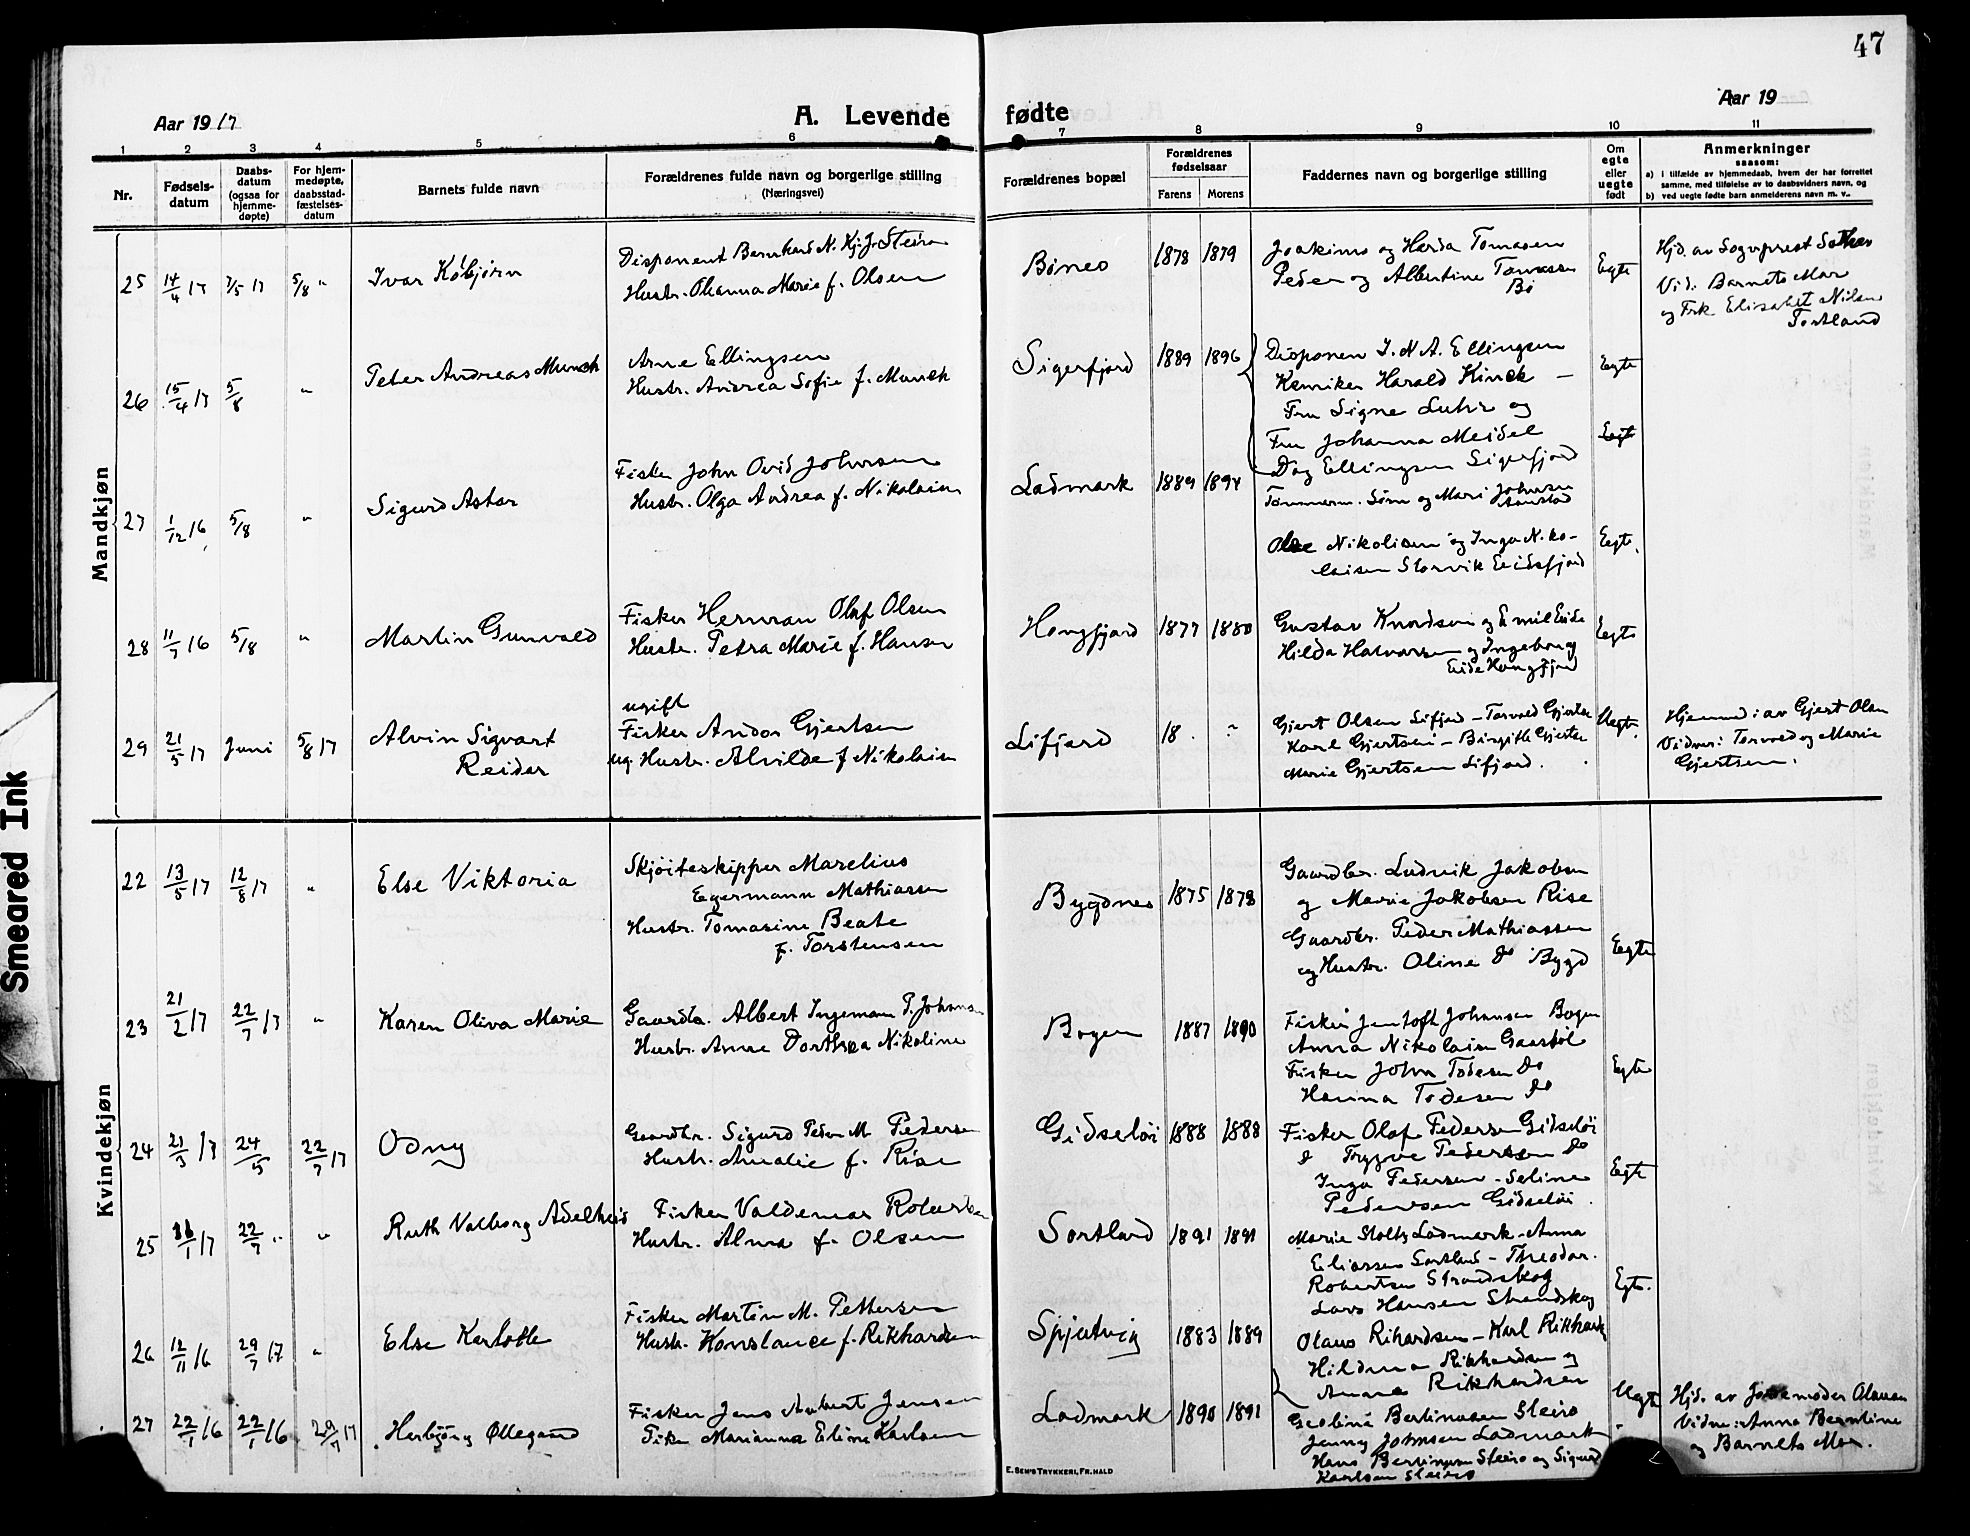 47
Aar 1917
A. Levende
fødte
Aar 19
1 2 3 4 5 6 7 8 9 10 11
Nr.
Fødsels-
datum
Daabs-
datum
(ogsaa for
hjemme-
døpte)
For hjem-
medøpte,
daabsstad-
fæstelses-
datum
Barnets fulde navn
Forældrenes fulde navn og borgerlige stilling
(Næringsvei)
Forældrenes bopæl
Forældrenes
fødselsaar
Farens Morens
Faddernes navn og borgerlige stilling
Om
egte
eller
uegte
født
Anmerkninger
saasom:
a) i tilfælde av hjemmedaab, hvem der har forrettet
samme, med tilføielse av to daabsvidners navn, og
b) ved uegte fødte barn anmelderens navn m. v..
Mandkjøn
25 14/4 17 7/5 17 5/8 "
Ivar Kobjørn
Disponent Bernhard N. Hj. J. Steiro
Hustr. Ohanna Marie f. Olsen
Bineo
1878 1879
Joakims og Herda Tomasen
Peder og Albertine Tomassen
Bø
Egte
Hjd. av Sogneprest
Vid. Barnets Mor
og Frk Elisabet Nilsen
Sortland
26 15/4 17 5/8 "
Peter Andreas Munch
Arne Ellingsen
Hustr. Andrea Sofie f. Munch
Sigerfjord
1889 1896
Disponen J. N. A. Ellingsen
Kemiker Harald Kinck –
Fru Signe Luhr og
Fru Johanna Meidel
Dag Ellingsen Sigerfjord
Egte
Egte
27 1/12 16 5/8 "
Sigurd Astor
Fisker John Ovid Johnsen
Hustr. Olga Andrea f. Nikolaisen
Ladmark
1889 1894
Tømmerm. Sørn og Mari Johnsen
Nikolisen og Inga Niko-
laisen Storvik Eidsfjord
Eegte.
28 11/7 16 5/8 "
Martin Gunvald
Fisker Herman Olaf Olsen
Hustr. Petra Marie f. Hansen
Hongfjord
1877 1880
Gustav Knordsen og Emil Eide
Hilda Halvorsen og Ingeborg
Eide Hongfjord
Eegte
29 21/5 17 Juni 5/8 17
Alvin Sigvart
Reidar
ugift
Fisker Andor Gjertsen
ug. Hustr. Alvilde f Nikolaisen
Lifjord
18 . "
Gjert Olsen Lifjord – Torvald Gjertsen
Karl Gjertsen – Birgitte Gjertsen
Marie Gjertsen Lifjord.
Uegte.
Hjemmed: av Gjert Olsen
Vidner: Torvald og Marie
Gjertsen.
Kvindekjøn
22 13/5 17 12/8 17 "
Else Viktoria
Skjøiteskipper Marelius
Egermann Mathiassen
Hustr. Tomasine Beate
f. Torstensen
Bygdnes
1875 1878
Gaardbr. Ludvik Jakobsen
og Marie Jakobsen Rise
Gaardbr. Peder Mathiassen
og Hustr. Oline do Bygd
Eegte
23 21/2 17 22/7 17 "
Karen Oliva Marie
Gaardb. Albert Ingemann P. Johansen
Hustr. Anne Dorthea Nikoline
Bogen
1887 1890
Fisker Jentoft Johansen Bogen
Anna Nikolaisen
Fisker John Todesen do
Hanna Todesen do
Egte
24 21/3 17 24/5 22/7 17
Odny
Gaardbr. Sigurd Peder M. Pedersen
Hustr. Amalie f. Rise
Gidseløi
1888 1888
Fisker Olaf Pedersen Gidseløi
d Trygve Pedersen do
Inga Pedersen – Seline
Pedersen Gidseløi.
Egte
25 /1 17 22/7 " "
Ruth Valborg Adelheid
Fisker Valdemar Robertsen
Hustr. Alma f. Olsen
Sortland
1891 1891
Marie Stoltz Ladmark – Anna
Eliassen Sortland – Theodor.
Robertsen Strandskog
Lars Hansen Strandskog
Egte.
26 12/11 16 29/7 17 "
Else Karlotte
Fisker Martin M. Pettersen
Hustr. Konstance f. Rikhardsen
Spjutvig
1883 1889
Olaus Rihardsen – Karl Rikhards
Hildma Rikhardsen og
Anna Rikhardsen
27 22/1 16 22/1 16 29/7 17
Herbjørg Ollegard
Fisker Jens Aubert Jensen
Pike Marianna Eline Karlsen
Ladmark
1890 1891
Geoline Bertinusen Steiro
Jenny Johnsen Ladmark
Hans Bertinusen Steiro og Sigurd
Karlsen Steiro
Uegte
Hjd. av Jordemoder
Vidne: Anna Berntine
og Barnets Mor.
E. SEM'S TRYKKERI, FR.HALD
Smeared Ink